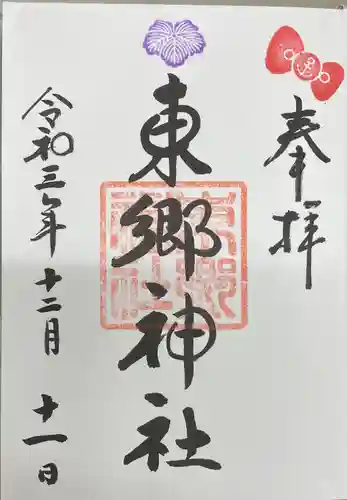 奉拝
東郷神社
令和三年十二月十一日